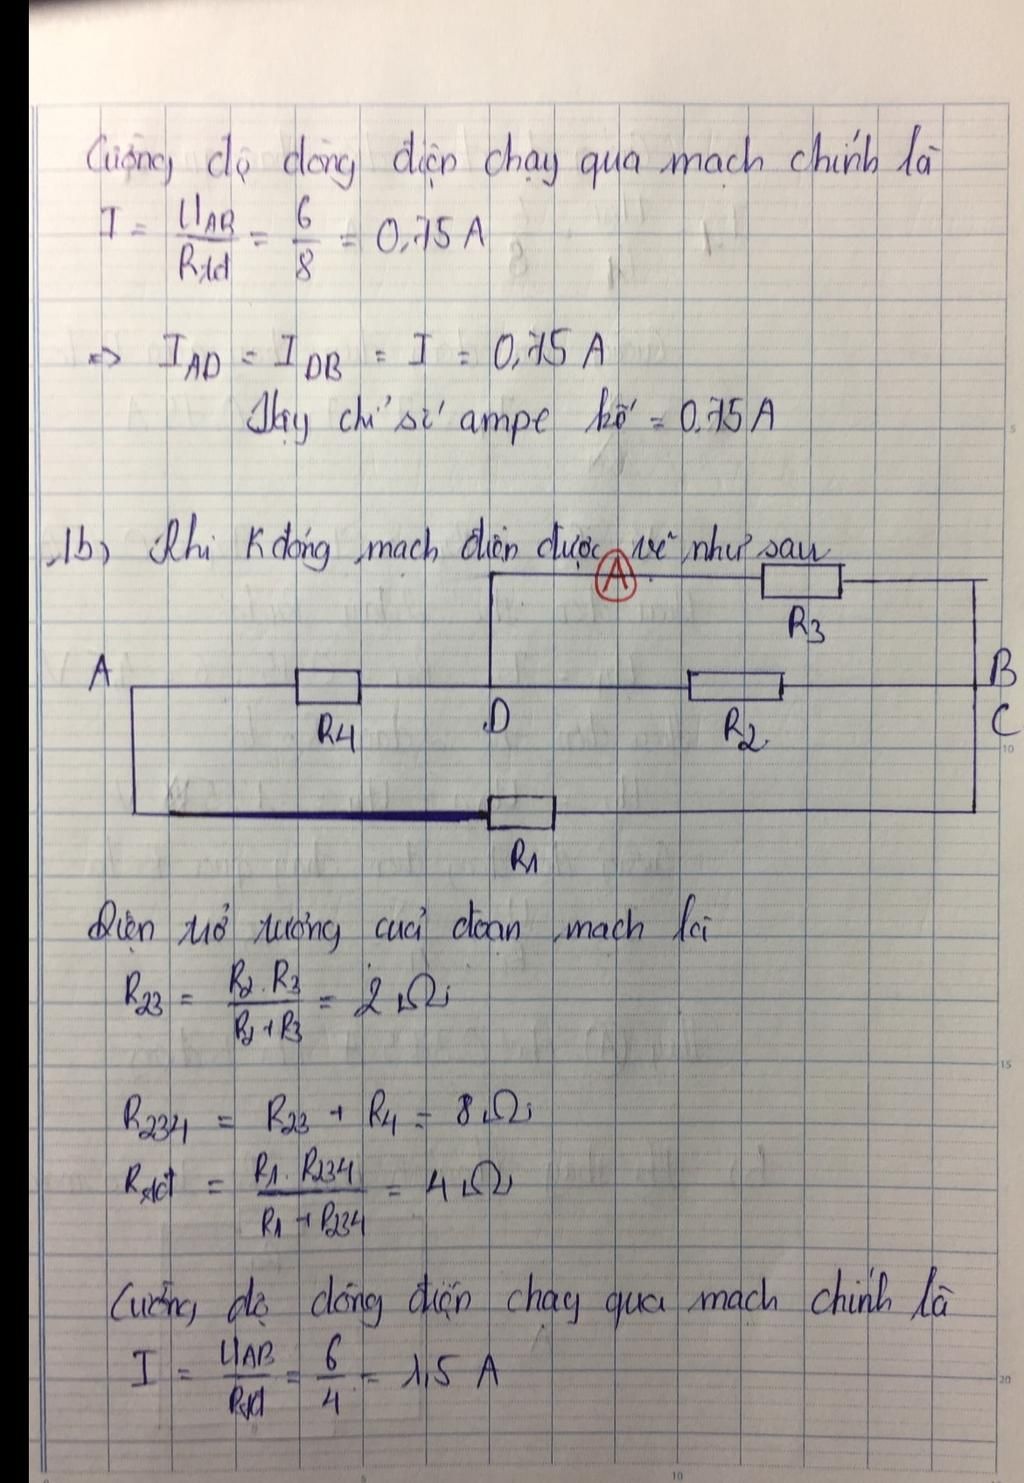 Cường độ dòng điện chạy qua mạch chính là
I = U_AB / R_tđ = 6 / 8 = 0,75 A
=> I_AD = I_DB = I = 0,75 A
Vậy chỉ số ampe kế = 0,75 A
1b) Khi K đóng mạch điện được vẽ như sau
A
R3
A
B
R4
D
R2
C
R1
Điện trở tương của đoạn mạch là
R_23 = R2 . R3 / R2 + R3 = 2 Ω
R_234 = R_23 + R4 = 8 Ω
R_tđ = R1 . R_234 / R1 + R_234 = 4 Ω
Cường độ dòng điện chạy qua mạch chính là
I = U_AB / R_tđ = 6 / 4 = 1,5 A
5
10
15
20
5
10